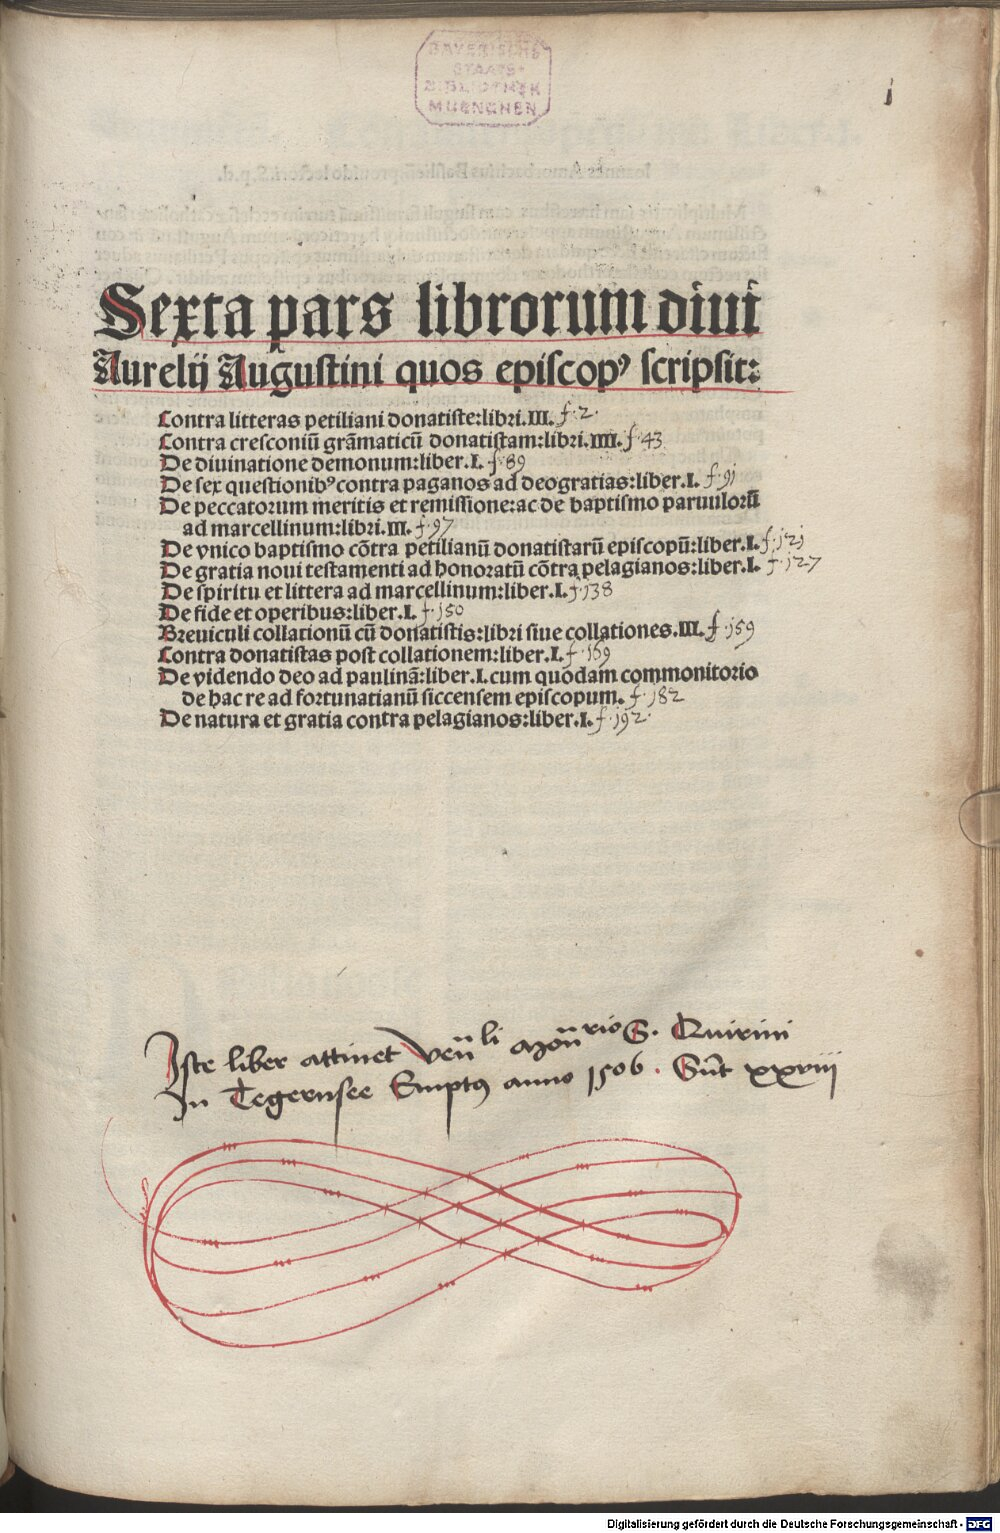 BAYERISCHE
STAATS-
BIBLIOTHEK
MUENCHEN
i
Sexta pars librorum diui
Aurelij Augustini quos episcopꝰ scripsit:
Contra litteras petiliani donatiste:libri.III. f. 2.
Contra cresconiũ grãmaticũ donatistam:libri.IIII. f. 43
De diuinatione demonum:liber.I. f. 89
De sex questionibꝰ contra paganos ad deogratias:liber.I. f. 91
De peccatorum meritis et remissione:ac de baptismo paruulorũ
ad marcellinum:libri.III. f. 97
De vnico baptismo cõtra petilianũ donatistarũ episcopũ:liber.I. f. 121
De gratia noui testamenti ad honoratũ cõtra pelagianos:liber.I. f. 127
De spiritu et littera ad marcellinum:liber.I. f. 138
De fide et operibus:liber.I. f. 150
Breuiculi collationũ cũ donatistis:libri siue collationes.III. f. 159
Contra donatistas post collationem:liber.I. f. 169
De videndo deo ad paulinã:liber.I.cum quodam commonitorio
de hac re ad fortunatianũ siccensem episcopum. f. 182
De natura et gratia contra pelagianos:liber.I. f. 192.
Iste liber attinet Ven̄li Mon̄rio S. Quirini
In Tegernsee Emptꝰ anno 1506. Sũt xxviii
Digitalisierung gefördert durch die Deutsche Forschungsgemeinschaft - DFG